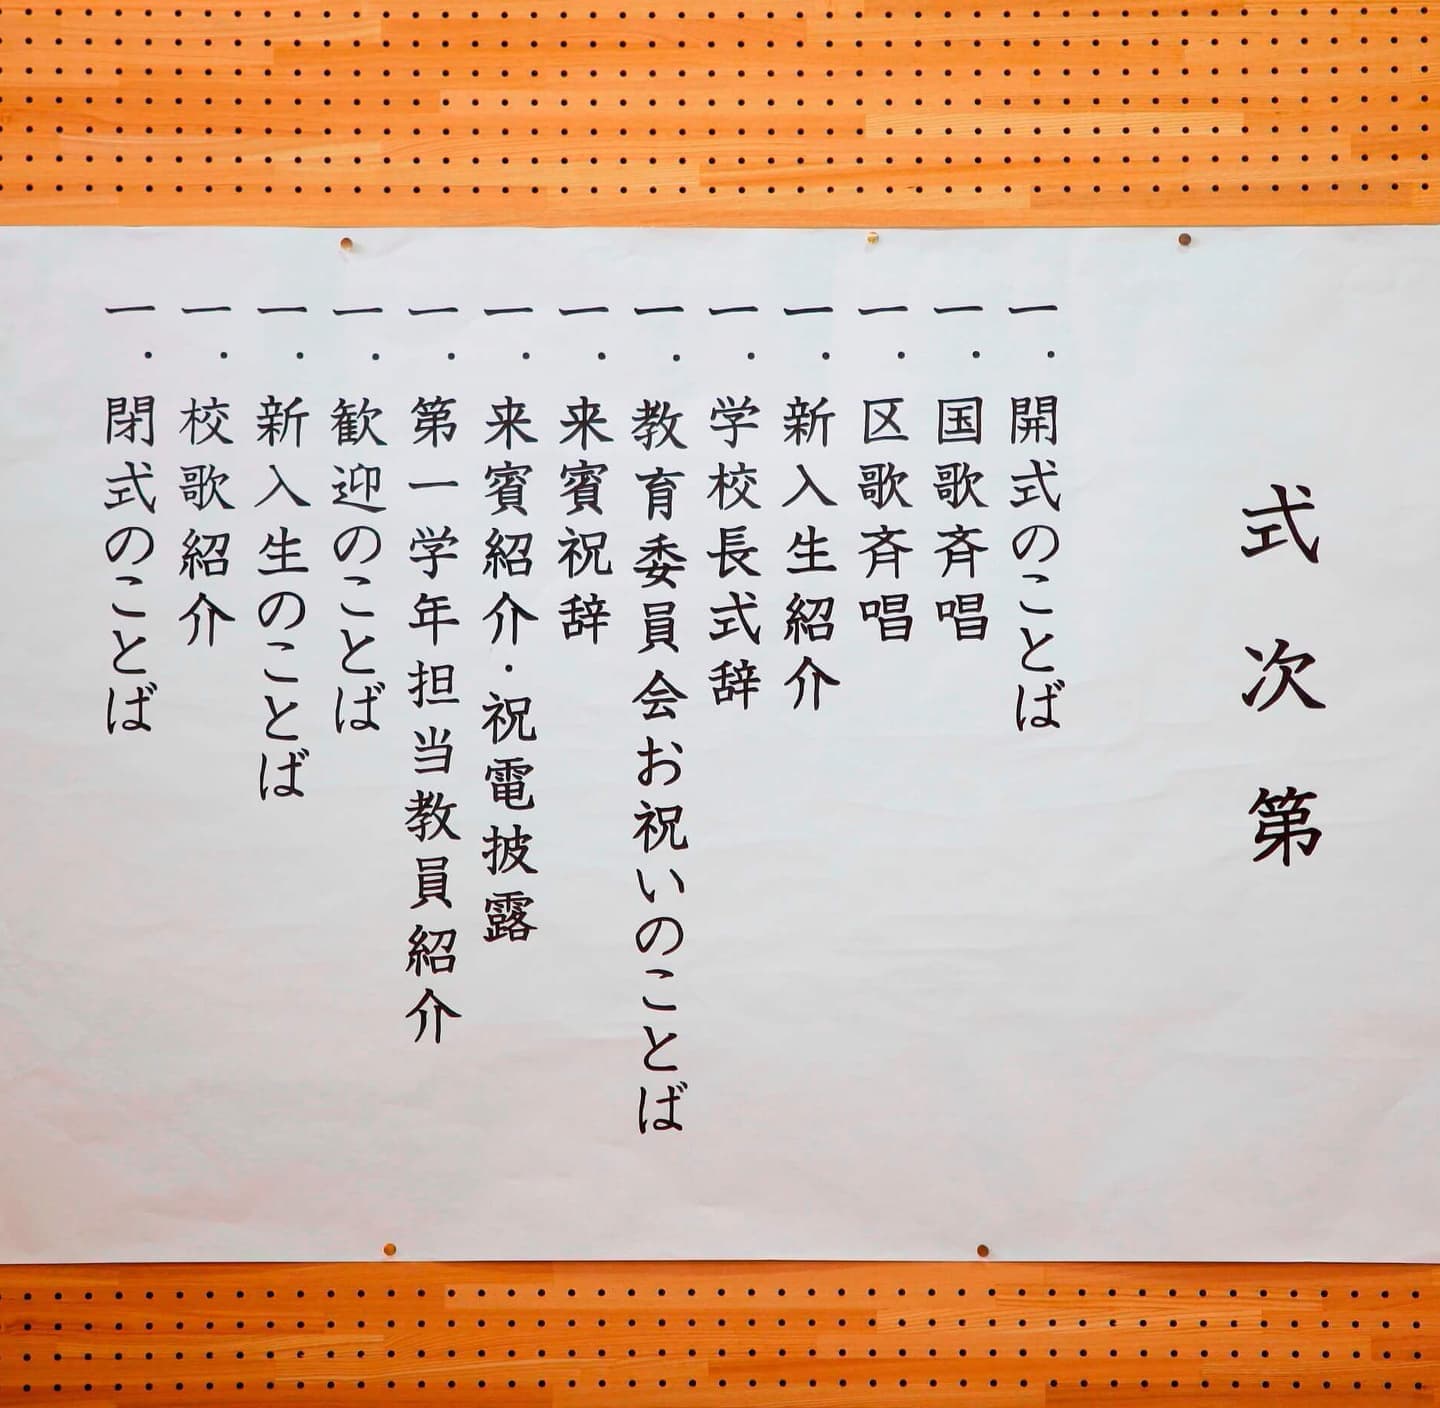 式次第
一．開式のことば
一．国歌斉唱
一．区歌斉唱
一．新入生紹介
一．学校長式辞
一．教育委員会お祝いのことば
一．来賓祝辞
一．来賓紹介・祝電披露
一．第一学年担当教員紹介
一．歓迎のことば
一．新入生のことば
一．校歌紹介
一．閉式のことば